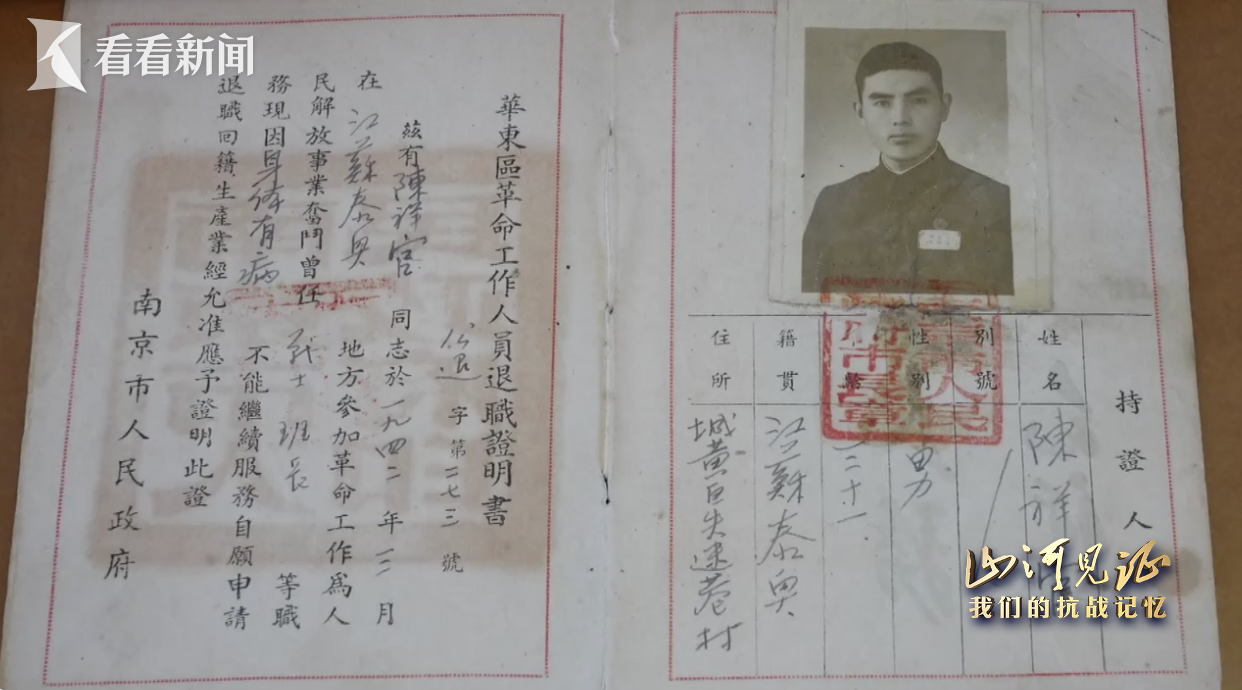 看看新闻
持證人
姓名 陳祥
別號
性別 男
二十一
籍貫 江蘇泰兴
住所 城黄区 村
華東區革命工作人員退職證明書
公退 字第二七三號
茲有陳祥官同志於一九四二年 月
在江蘇泰兴地方參加革命工作爲人
民解放事業奮鬥曾任战士 班長 等職
務現因身体有病不能繼續服務自願申請
退職回籍生產業經允准應予證明此證
南京市人民政府
山河見证
我们的抗战记忆